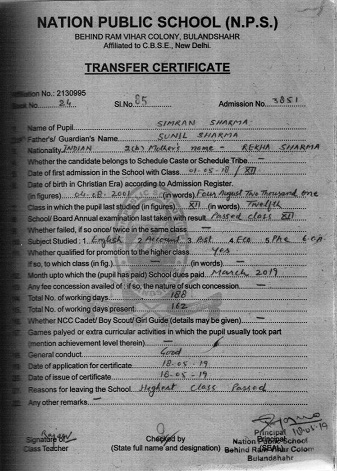 NATION PUBLIC SCHOOL (N.P.S.)
BEHIND RAM VIHAR COLONY, BULANDSHAHR
Affiliated to C.B.S.E., New Delhi.
TRANSFER CERTIFICATE
Affiliation No.: 2130995
Book No. 24 Sl.No. 85 Admission No. 3851
Name of Pupil SIMRAN SHARMA
Father's/ Guardian's Name SUNIL SHARMA
Nationality INDIAN 2(b) Mother's name - REKHA SHARMA
Whether the candidate belongs to Schedule Caste or Schedule Tribe —
Date of first admission in the School with Class 01-05-18 / XII
Date of birth in Christian Era) according to Admission Register.
(in figures) 04-08-2001 (in words) Four August Two Thousand one
Class in which the pupil last studied (in figures) XII (in words) Twelfth
School/ Board Annual examination last taken with result Passed class XII
Whether failed, if so once/ twice in the same class —
Subject Studied : 1. English 2. Account 3. B.st 4. Eco 5. Phe 6.
Whether qualified for promotion to the higher class Yes
If so, to which class (in fig.) — (in words) —
Month upto which the (pupil has paid) School dues paid March, 2019
Any fee concession availed of : if so, the nature of such concession —
14. Total No. of working days 188
Total No. of working days present 162
Whether NCC Cadet/ Boy Scout/ Girl Guide (details may be given) —
Games palyed or extra curricular activities in which the pupil usually took part
(mention achievement level therein) —
18. General conduct Good
Date of application for certificate 18-05-19
Date of issue of certificate 18-05-19
Reasons for leaving the School Heighest Class Passed
Any other remarks —
Signature of
Class Teacher
Checked by
(State full name and designation)
18-05-19
Principal
(SEAL)
Principal
Nation Public School
Behind Ram Vihar Colony
Bulandshahr